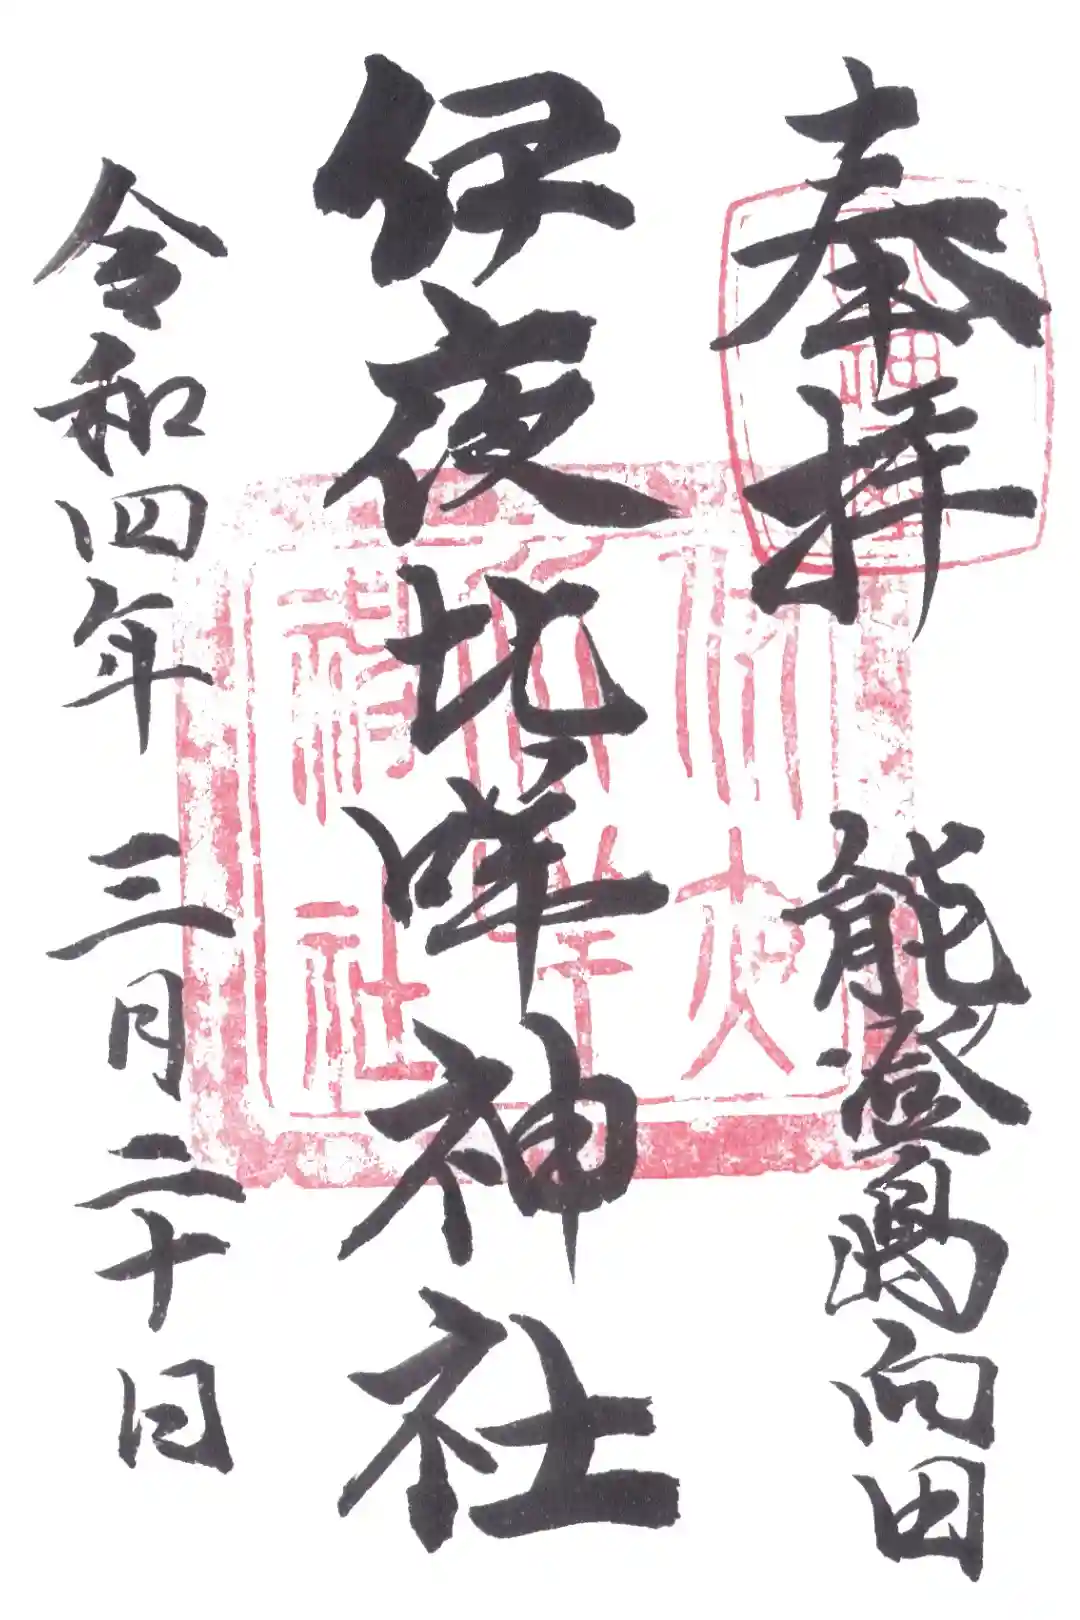 奉拝 能登島向田
伊夜比咩神社
令和四年 三月二十日
伊夜比咩神社